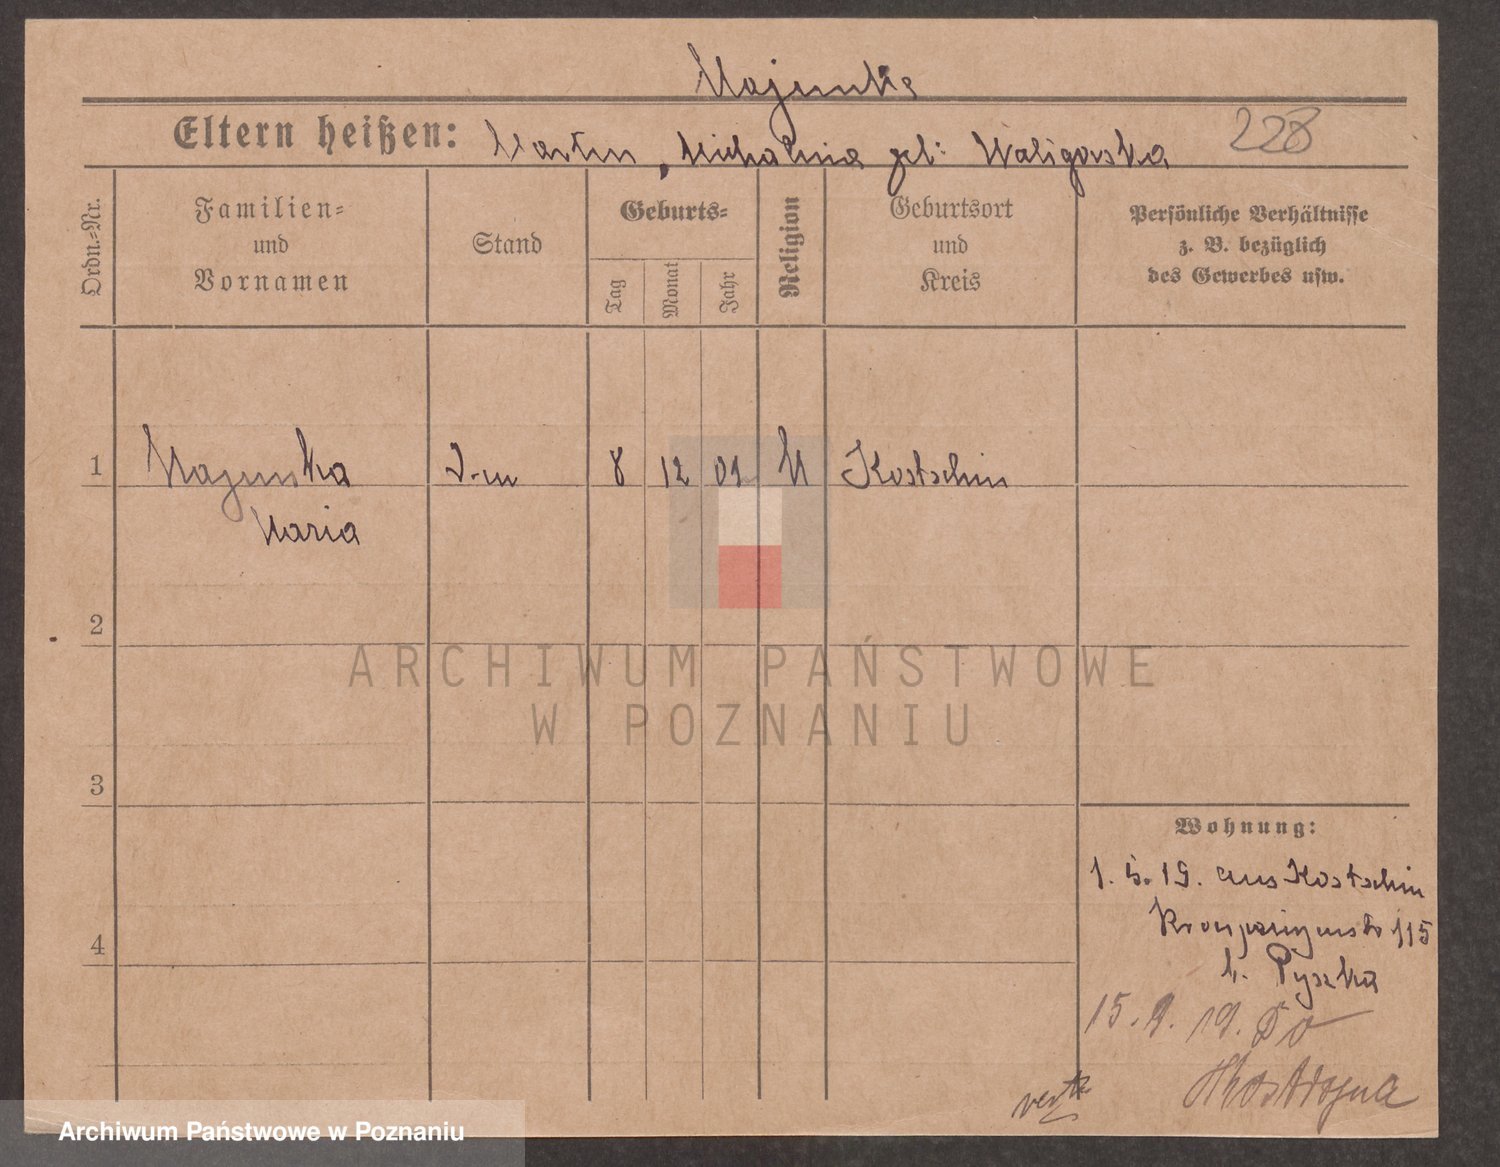 Eltern heißen: Martin, Michalina geb: Waligorska 228
Ordn.-Nr.
Familien-
und
Vornamen
Stand
Geburts-
Tag
Monat
Jahr
Religion
Geburtsort
und
Kreis
Persönliche Verhältnisse
z. B. bezüglich
des Gewerbes usw.
1 8 12 01 Kostschin
Maria
2
ARCHIWUM PAŃSTWOWE
W POZNANIU
3
Wohnung:
1. 5. 19. aus Kostschin
Kronprinzenstr 115
b. Pyszka
4
15. 9. 19.
Kostrzyna
Archiwum Państwowe w Poznaniu